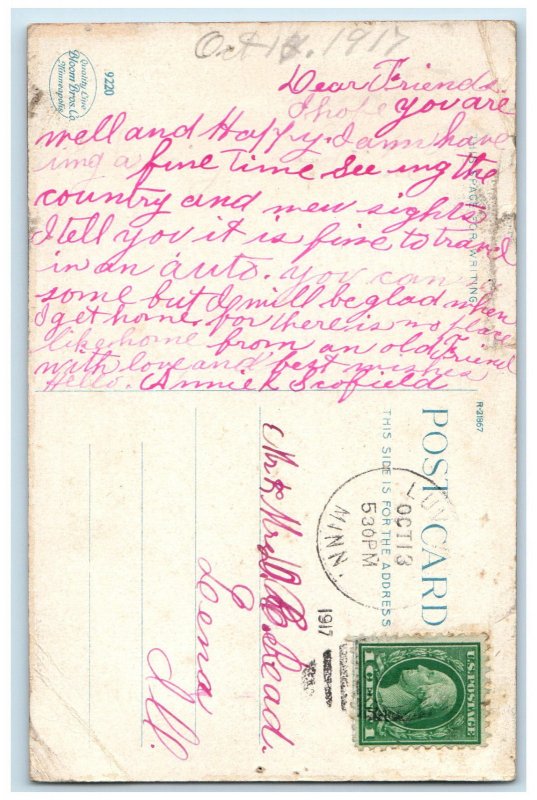 Oct 13, 1917
9220
Quality Line
Bloom Bros. Co.
Minneapolis
Dear Friends.
I hope you are
well and Happy. I am hav
ing a fine time see ing the
country and new sights
I tell you it is fine to travel
in an auto. you can
some but I will be glad when
I get home. for there is no place
like home from an old Friend
with love and best wishes
Hello. Annie K Scofield
THIS SPACE FOR WRITING
R-21867
POST CARD
THIS SIDE IS FOR THE ADDRESS
OCT 13
530PM
MINN.
1917
U.S. POSTAGE
1 CENT 1
Mr & Mrs Read.
Lena
Ill.